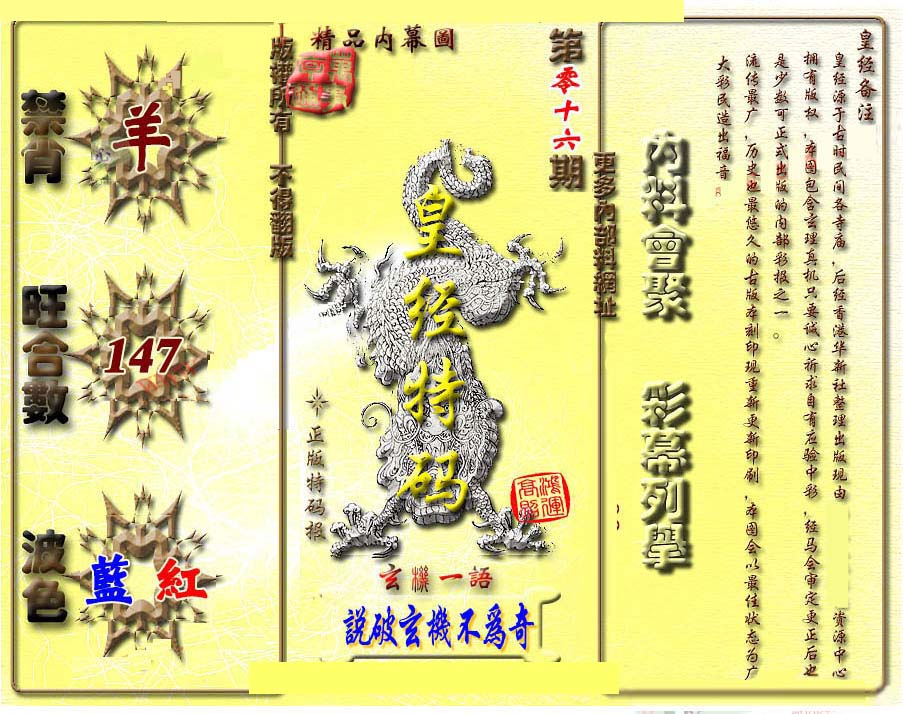 皇经备注
皇经源于古时民间各寺庙,后经香港华新社整理出版现由 资源中心
拥有版权,本图包含玄理真机只要诚心祈求自有应验中彩,经马会审定更正后也
是少数可正式出版的内部彩报之一。
流传最广,历史也最悠久的古版本刻印现重新更新印刷,本图会以最佳状态为广
大彩民造出福音
內料會聚
彩幕列擧
更多內部料網址
第零十六期
精品内幕圖
皇经特码
正版特码报
鴻運
高照
玄機一語
説破玄機不爲奇
版權所有 不得翻版
禁肖
羊
旺合數
147
波色
藍 紅